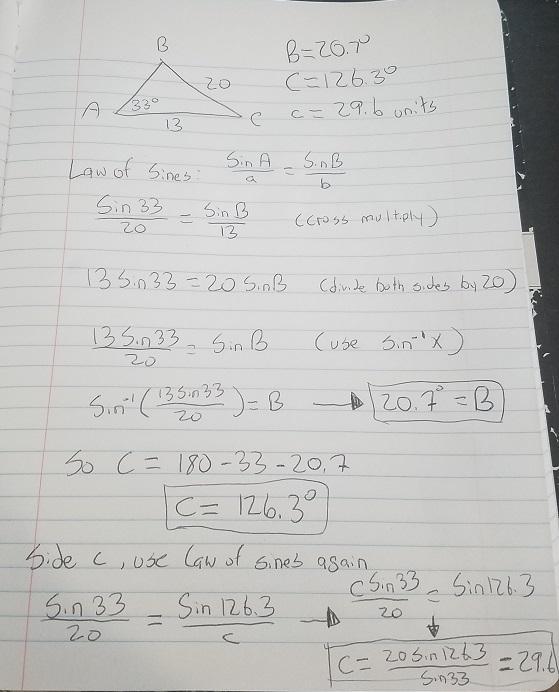 B
20
A
33°
13
C
B=20.7°
C=126.3°
c=29.6 units
Law of Sines: Sin A/a = Sin B/b
Sin 33/20 = Sin B/13 (Cross multiply)
13 Sin 33 = 20 Sin B (divide both sides by 20)
13 Sin 33/20 = Sin B (use Sin⁻¹ X)
Sin⁻¹(13 Sin 33/20) = B → 20.7° = B
So C = 180 - 33 - 20.7
C = 126.3°
Side c, use law of sines again
Sin 33/20 = Sin 126.3/c → C Sin 33/20 = Sin 126.3
↓
C = 20 Sin 126.3/Sin 33 = 29.6